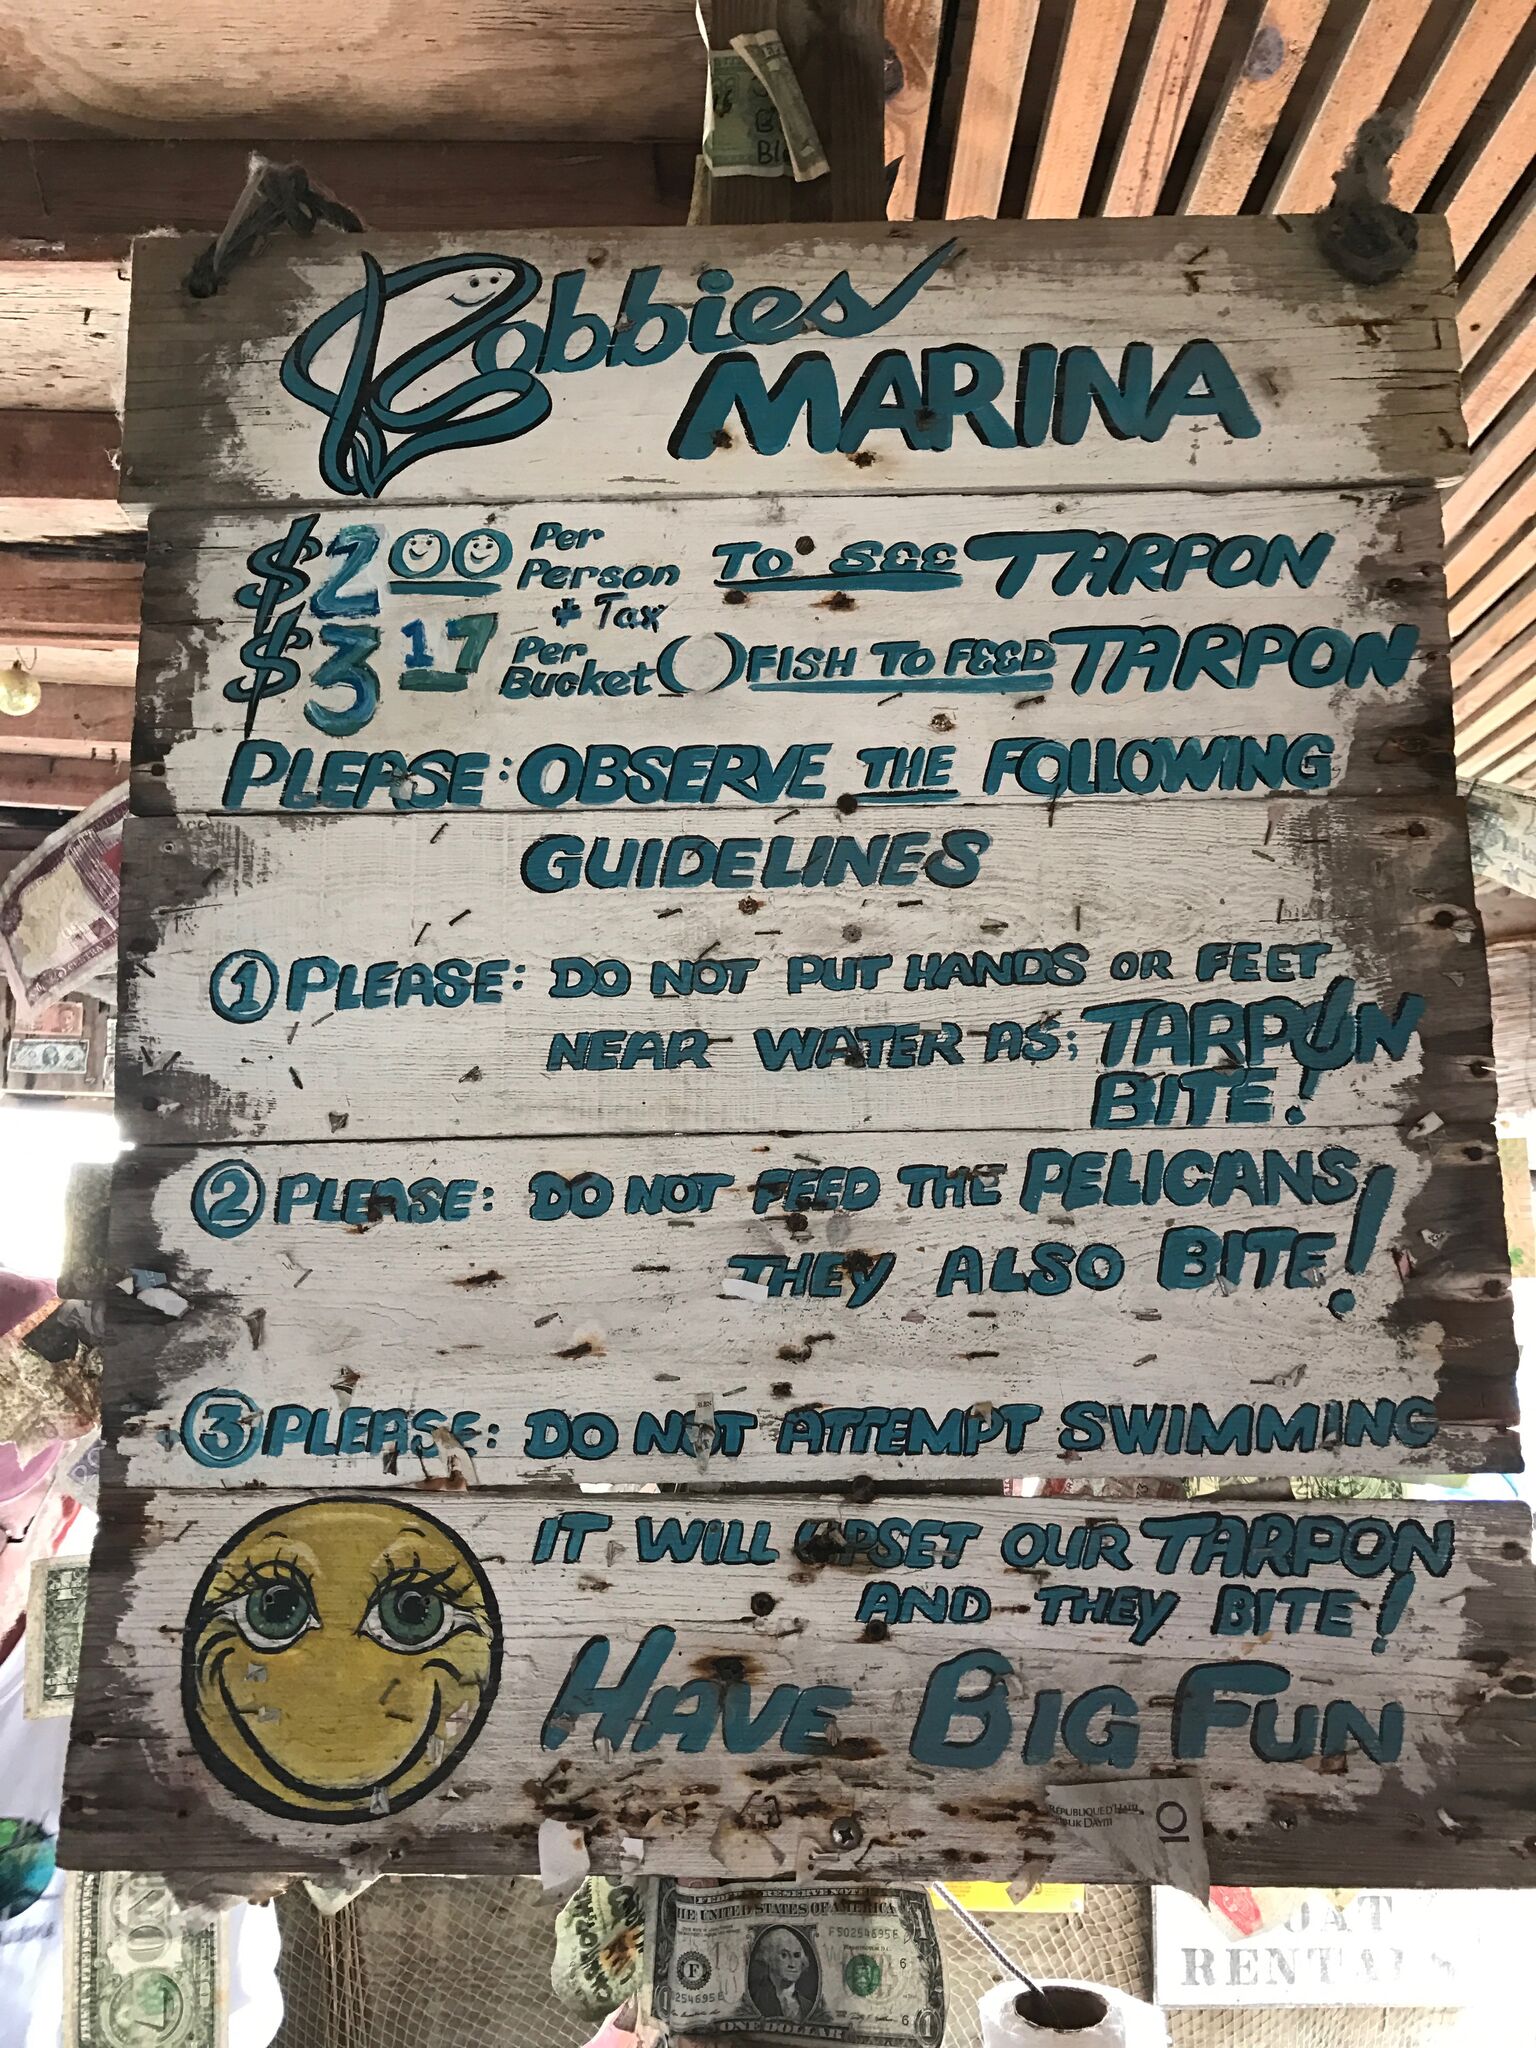 Robbies
MARINA
$2.00 Per Person + Tax TO SEE TARPON
$3.17 Per Bucket ( ) FISH TO FEED TARPON
PLEASE: OBSERVE THE FOLLOWING
GUIDELINES
1 PLEASE: DO NOT PUT HANDS OR FEET
NEAR WATER AS; TARPON
BITE!
2 PLEASE: DO NOT FEED THE PELICANS
THEY ALSO BITE!
3 PLEASE: DO NOT ATTEMPT SWIMMING
IT WILL UPSET OUR TARPON
AND THEY BITE!
HAVE BIG FUN
10
FEDERAL RESERVE NOTE
THE UNITED STATES OF AMERICA
F50254695E
F
6
ONE DOLLAR
1
RENTALS